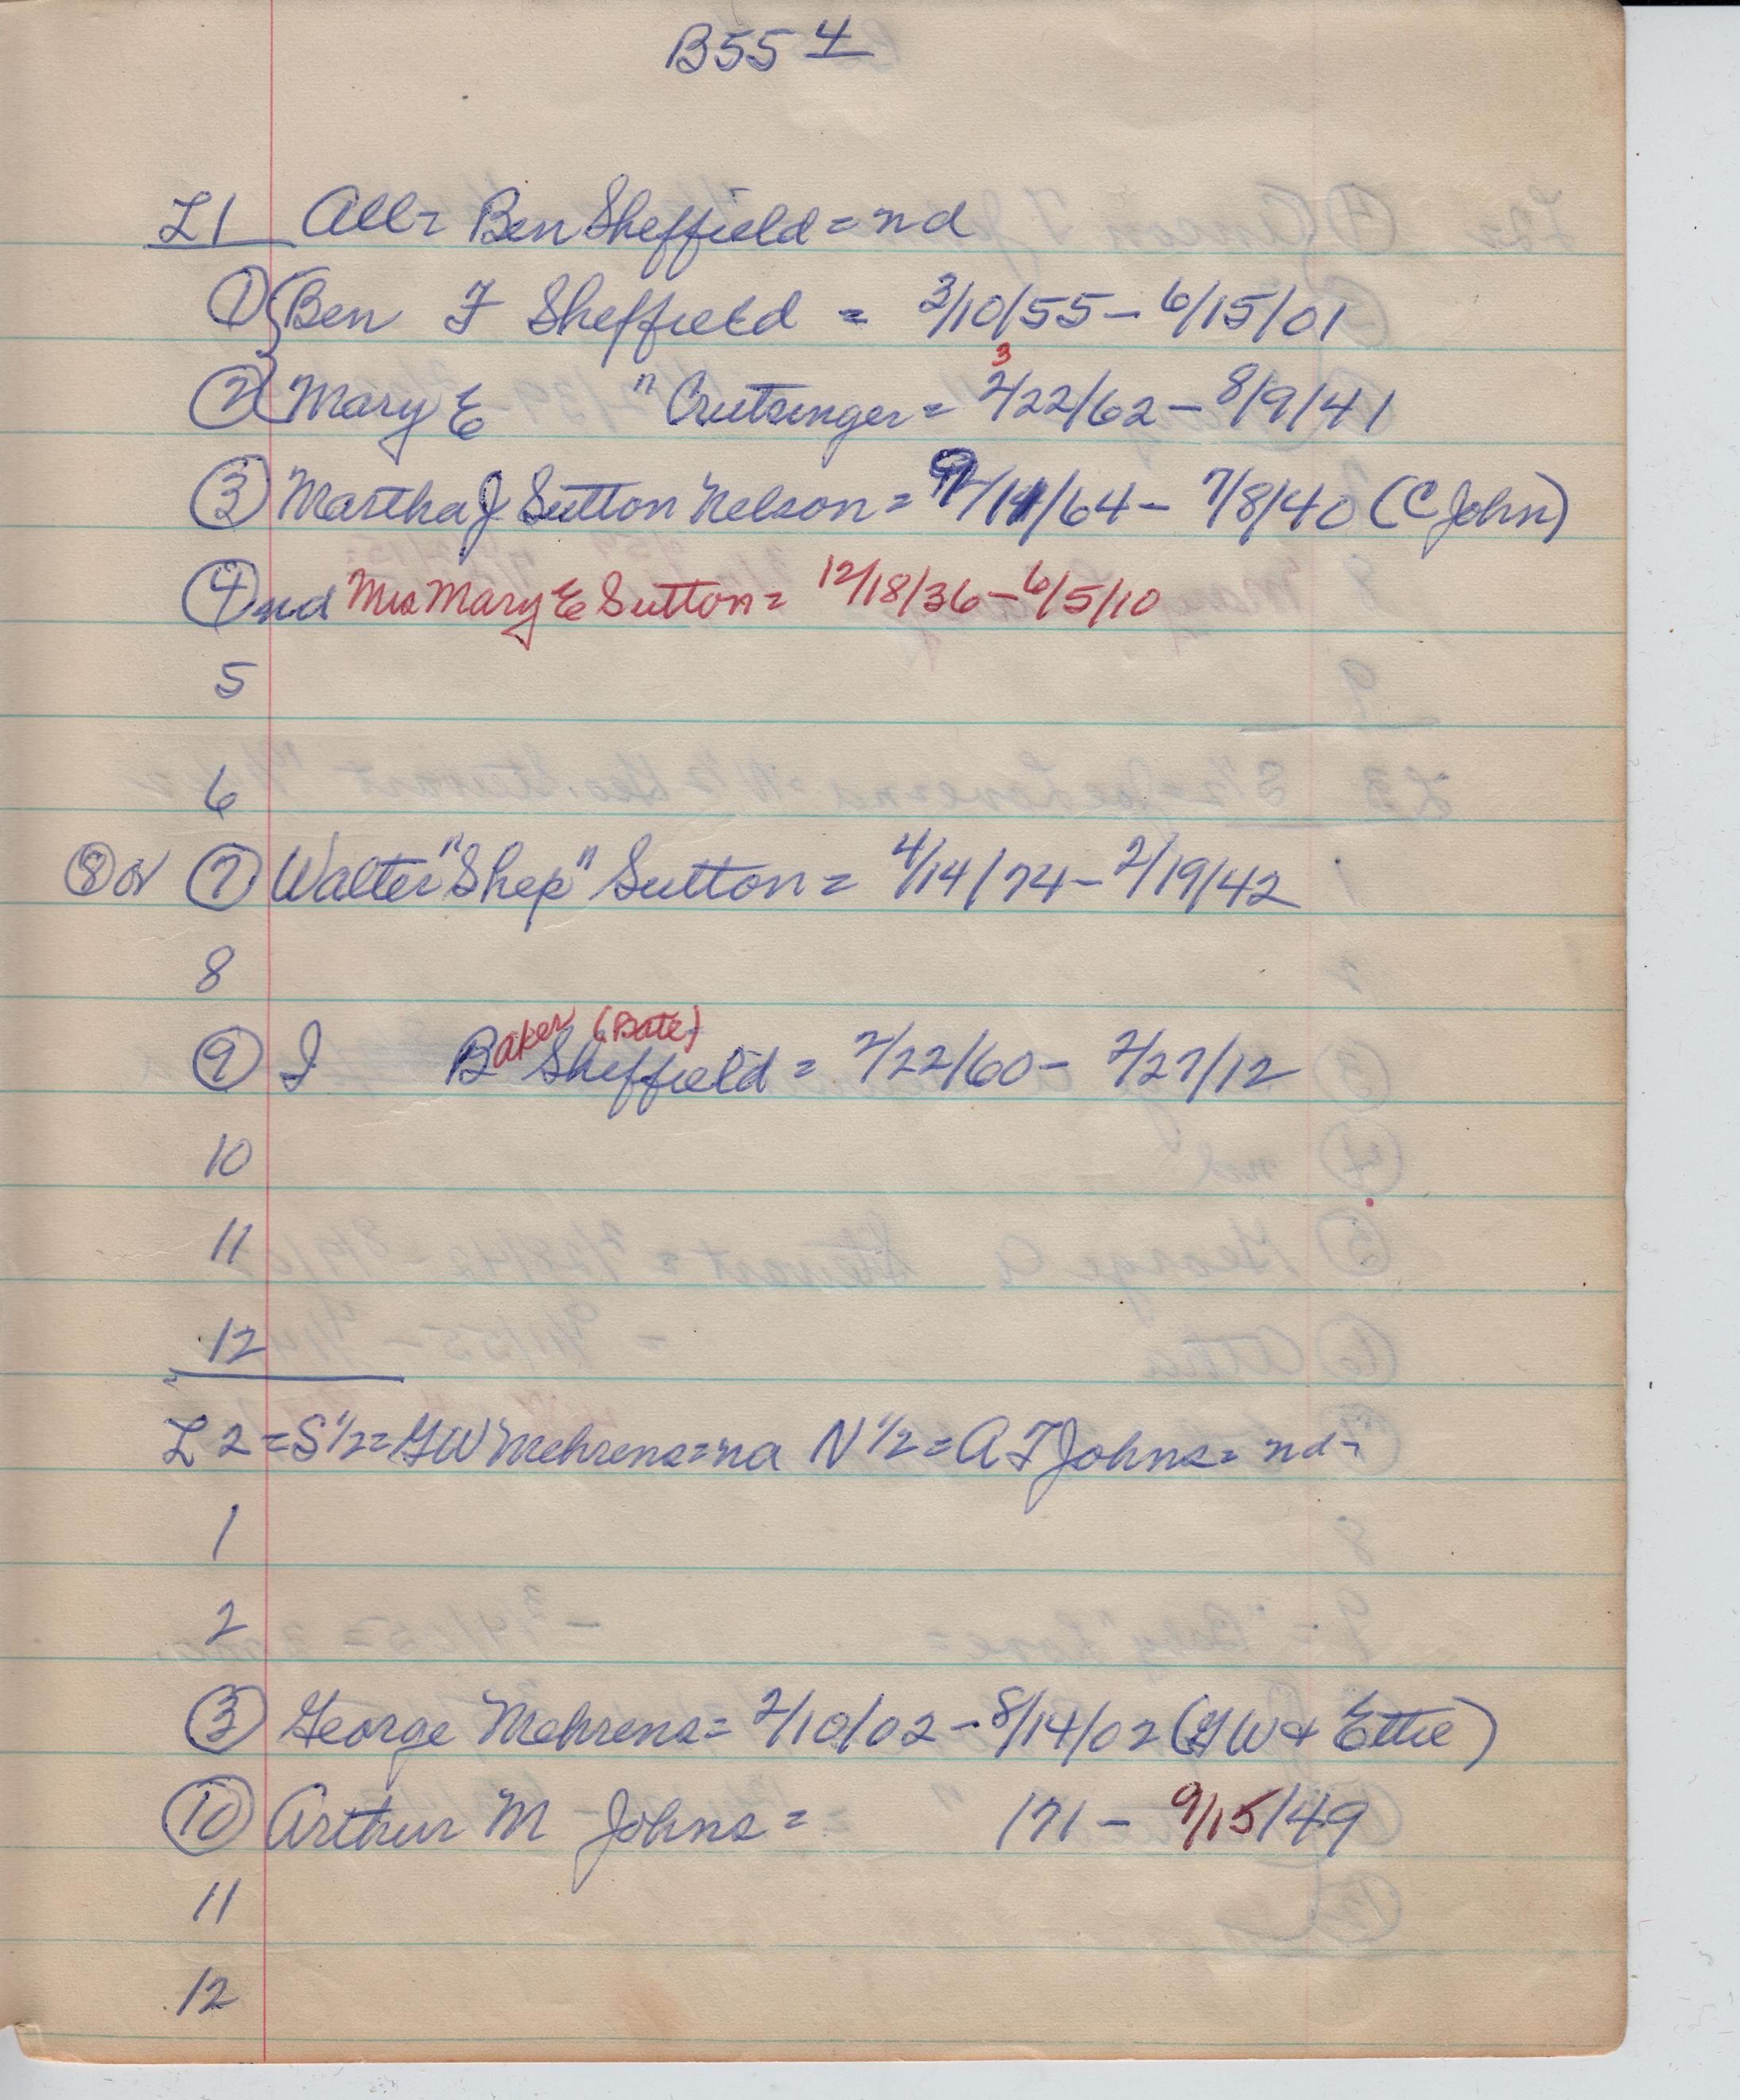 B55 4
L1 All = Ben Sheffield = nd
① Ben F Sheffield = 3/10/55 - 6/15/01
3
② Mary E " Crutsinger = 2/22/62 - 8/9/41
③ Martha J Sutton Nelson = /64 - 7/8/40 (C John)
④ nd Mrs Mary E Sutton = 12/18/36 - 6/5/10
5
6
⑧ or ⑦ Walter "Shep" Sutton = 4/14/74 - 2/19/42
8
⑨ I Baker (Bate) Sheffield = 2/22/60 - 2/27/12
10
11
12
L2 = S 1/2 = GW Mehrens = na N 1/2 = A F Johns = nd -
1
2
③ George Mehrens = 2/10/02 - 8/14/02 (GW & Ettie)
⑩ Arthur M Johns = /71 - 9/15/49
11
12